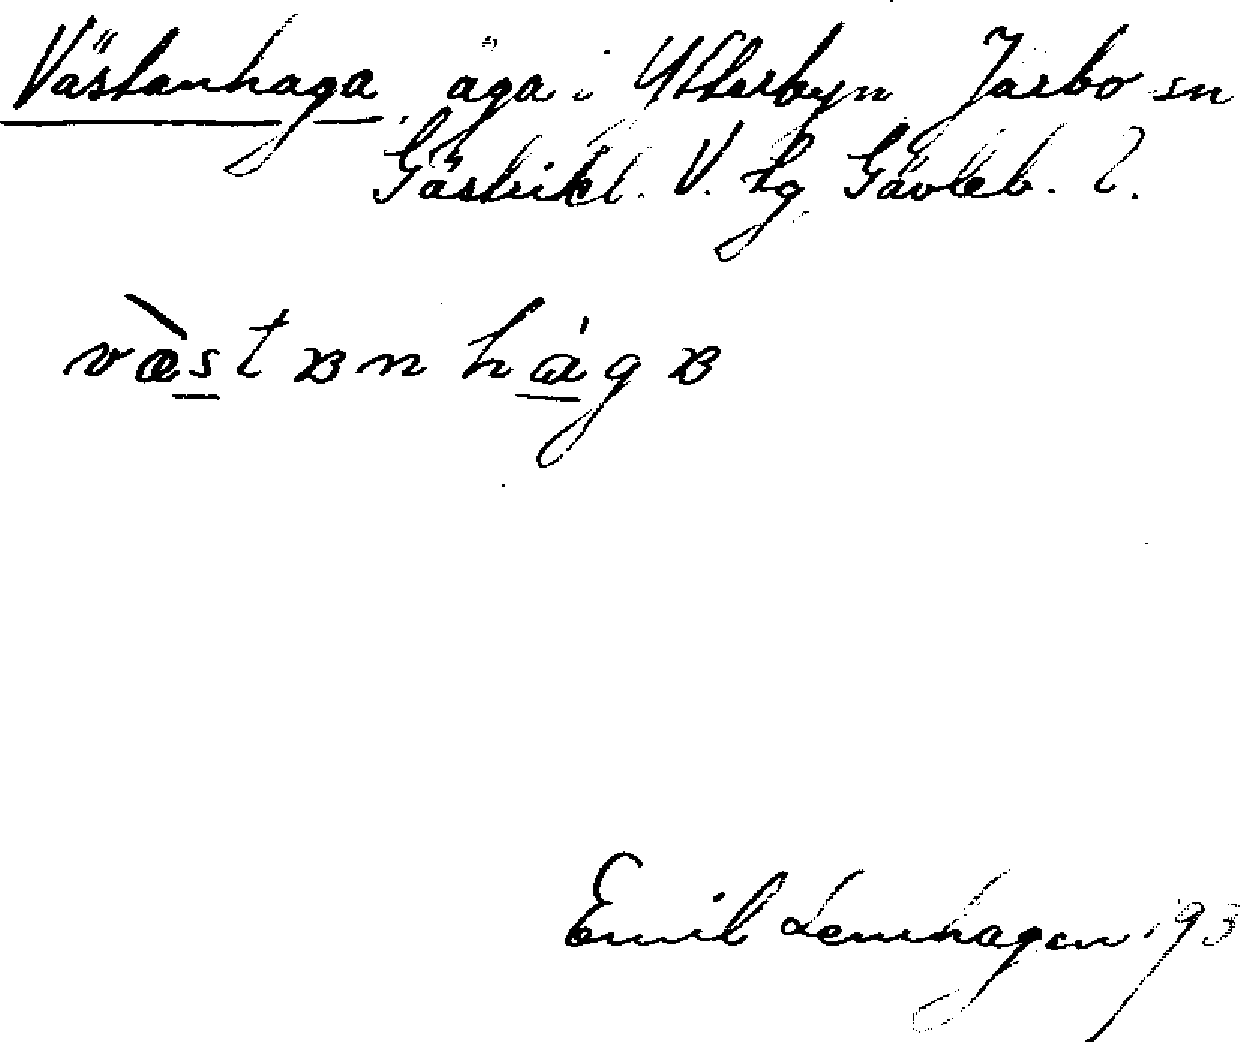 Västanhaga äga i Ytterbyn Järbo sn
Gästrikl. V. tg Gävleb. l.
væstɐnhágɐ
Emil Lennhagen 193